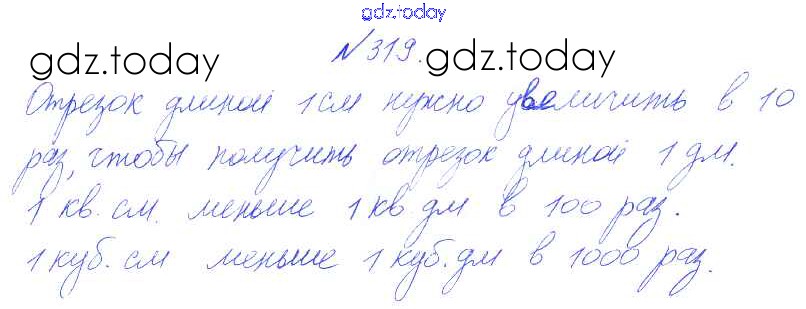 gdz.today
№319.
gdz.today gdz.today
Отрезок длиной 1 см нужно увеличить в 10
раз, чтобы получить отрезок длиной 1 дм.
1 кв. см. меньше 1 кв. дм в 100 раз.
1 куб. см меньше 1 куб. дм в 1000 раз.